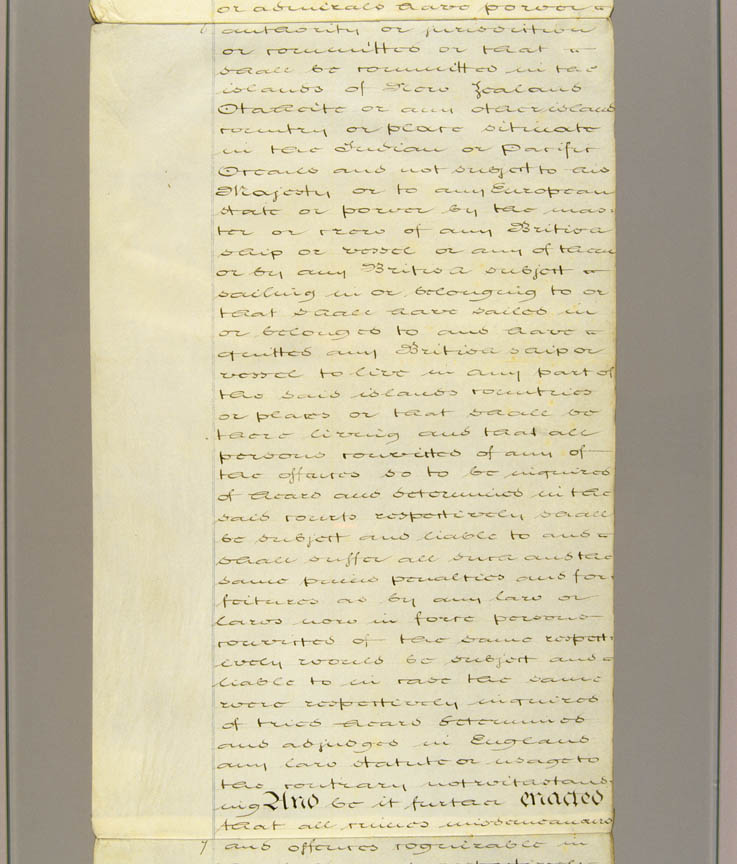 or admirals have power
6 authority or jurisdiction
or committed or that
shall be committed in the
islands of New Zealand
Otaheite or any other island
country or place situate
in the Indian or Pacific
Oceans and not subject to his
Majesty or to any European
state or power by the mas-
ter or crew of any British
ship or vessel or any of them
or by any British subject
sailing in or belonging to or
that shall have sailed in
or belonged to and have
quitted any British ship or
vessel to live in any part of
the said islands countries
or places or that shall be
there living and that all
persons convicted of any of
the offences so to be inquired
of heard and determined in the
said courts respectively shall
be subject and liable to and
shall suffer all such and the
same pains penalties and for-
feitures as by any law or
laws now in force persons
convicted of the same respect-
ively would be subject and
liable to in case the same
were respectively inquired
of tried heard determined
and adjudged in England
any law statute or usage to
the contrary notwithstand-
ing And be it further enacted
that all crimes misdemeanors
7 and offences cognizable in